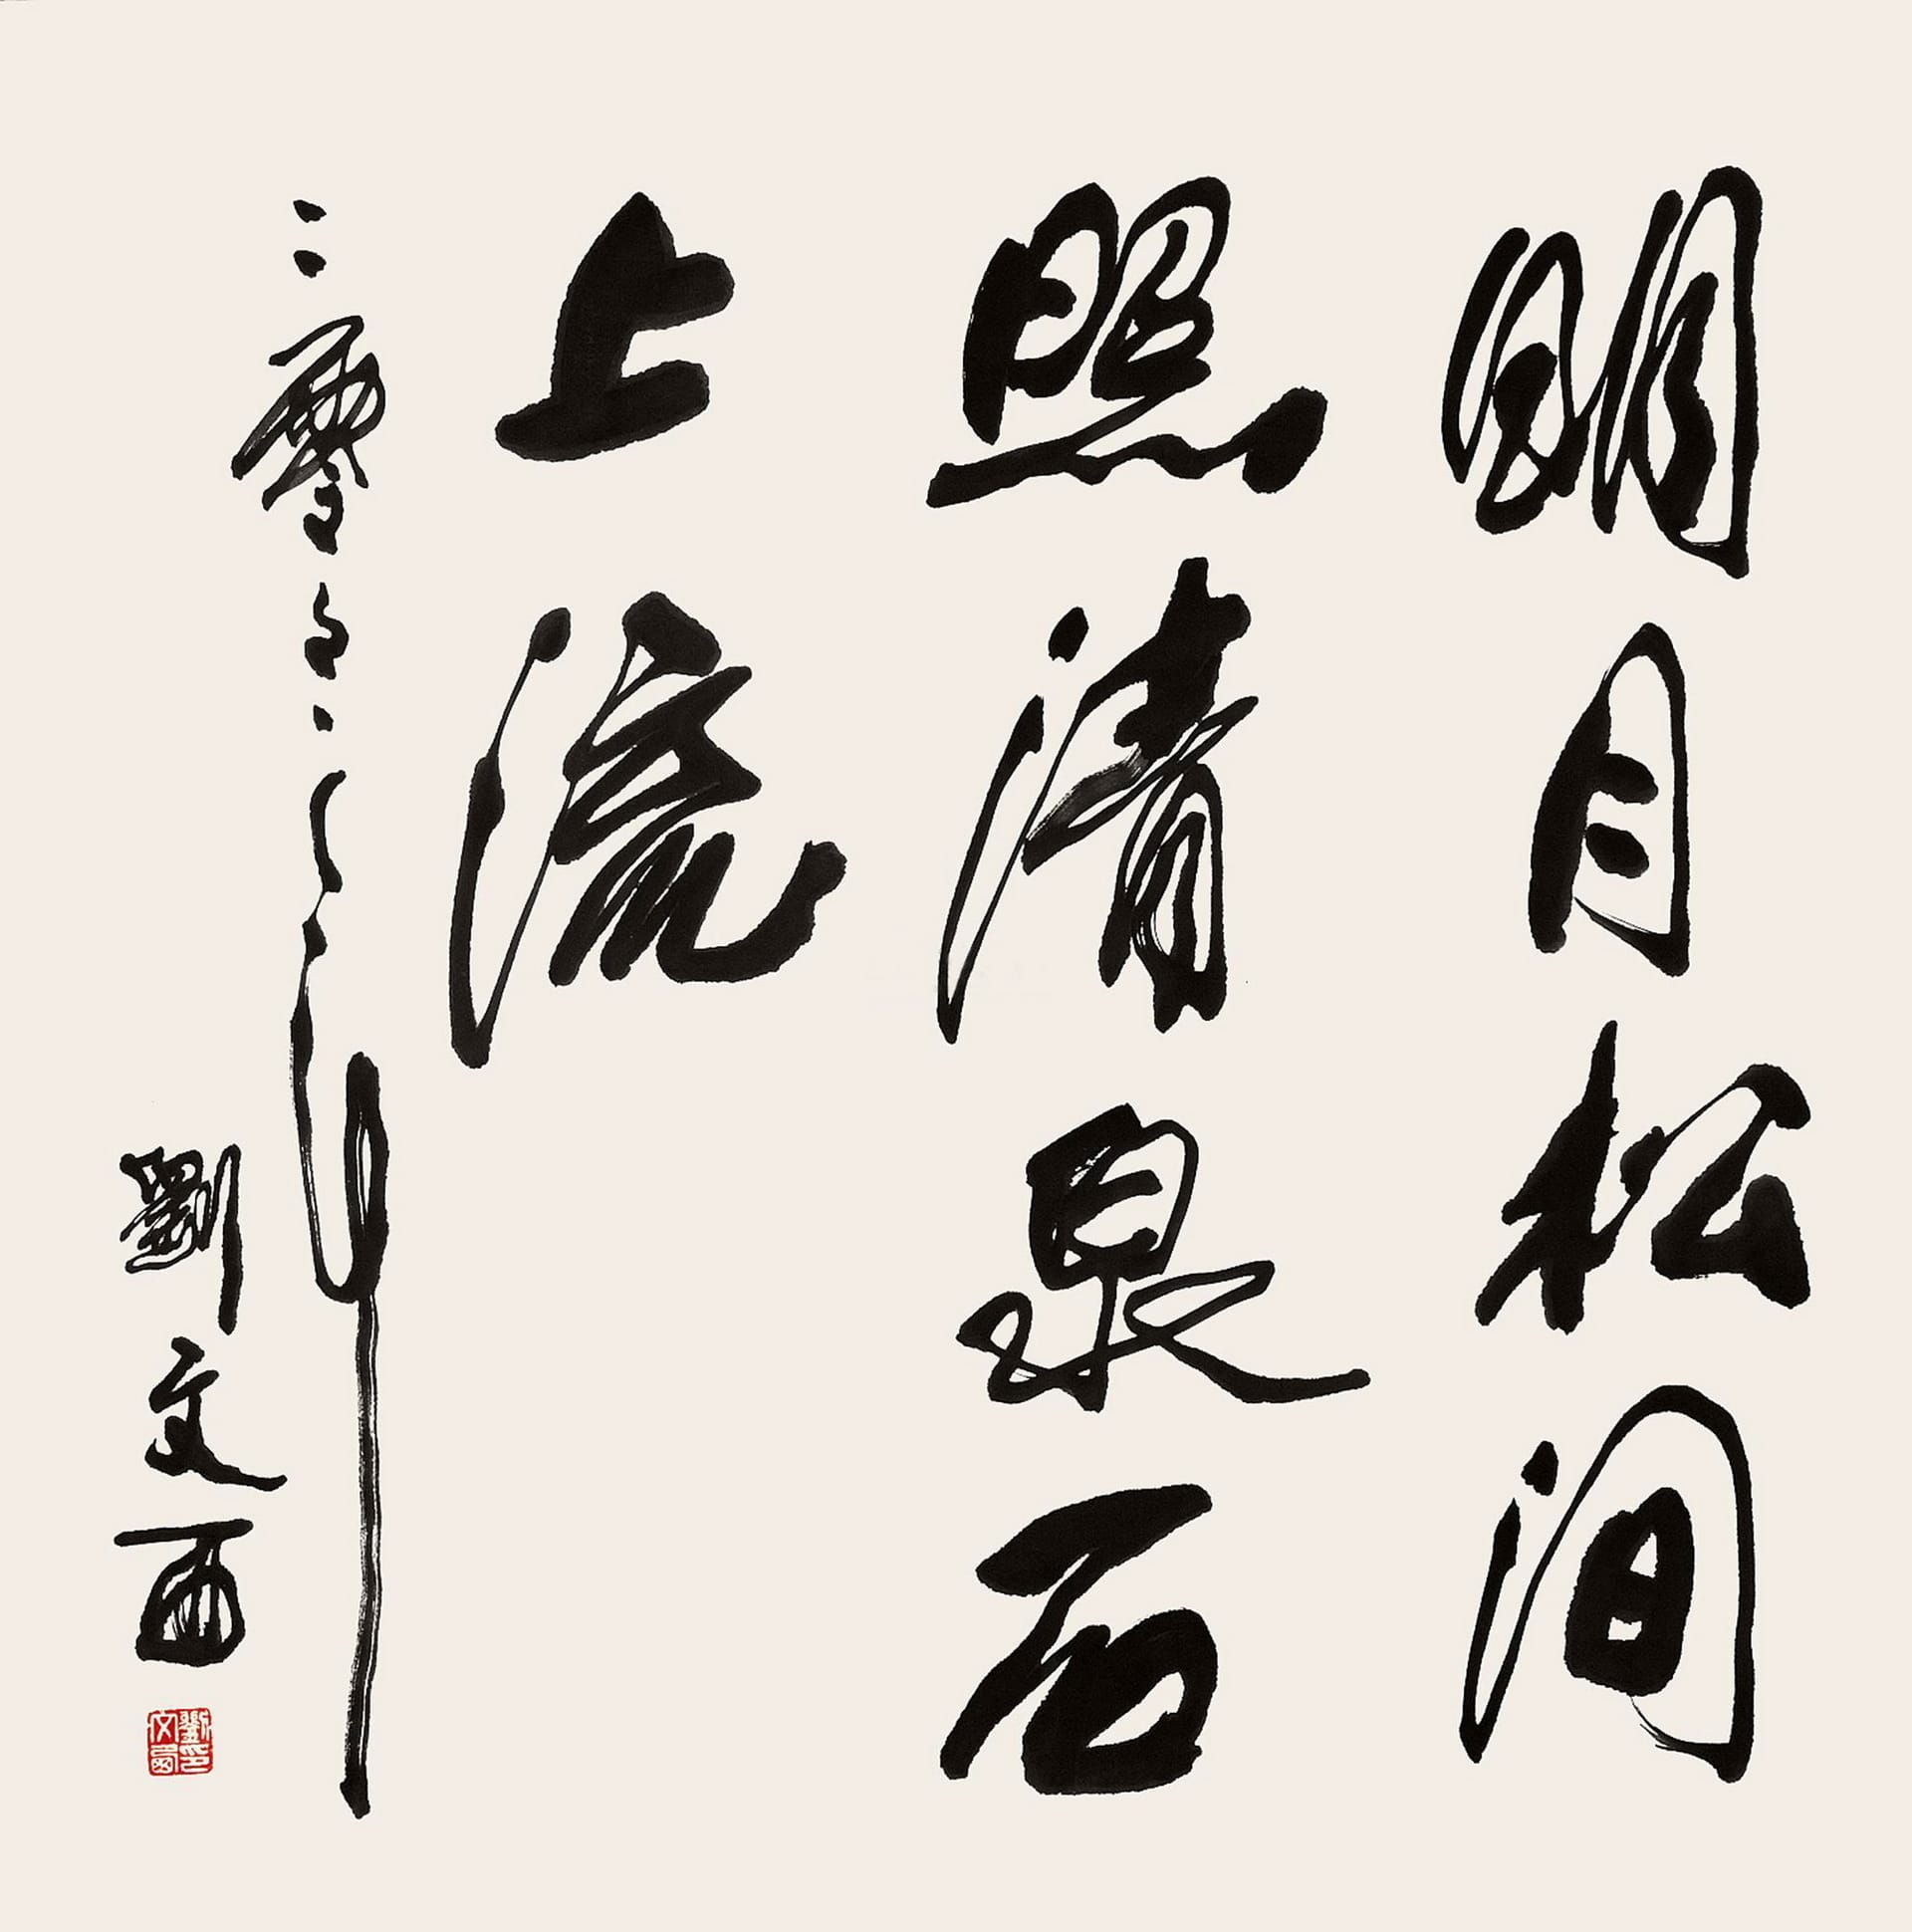 明月松涧
照清泉石
上流
二零零年
劉文西
劉印文西